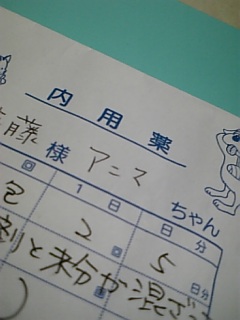 内用薬
藤 様 アニマ ちゃん
回 1日 日分
包 2回 5日分
剤と未分が混ざっ